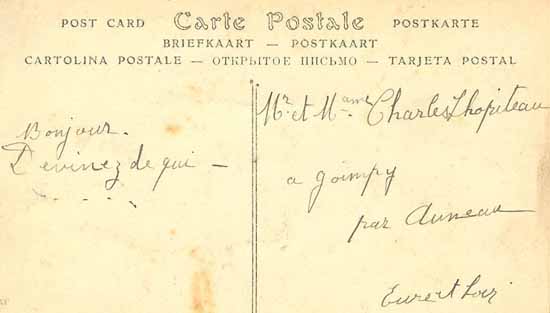 POST CARD Carte Postale POSTKARTE
BRIEFKAART — POSTKAART
CARTOLINA POSTALE — ОТКРЫТОЕ ПИСЬМО — TARJETA POSTAL
Bonjour.
Devinez de qui —
. . . . .
Mr. et Mame Charles Lhopiteau
a Goimpy
par Auneau
Eure et Loir